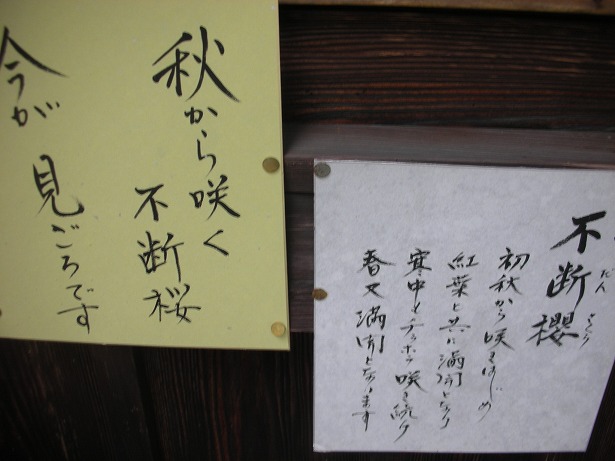 秋から咲く
不断桜
今が
見ごろです
不断櫻
だん さくら
初秋から咲きはじめ
紅葉と共に満開となり
寒中もチラホラ咲き続け
春又満開となります